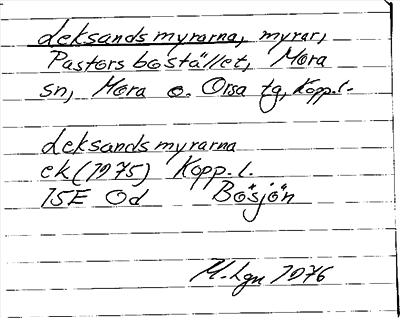 Leksandsmyrarna, myrar,
Pastorsbostället, Mora
sn, Mora o. Orsa tg, Kopp.l.
Leksandsmyrarna
ek (1975) Kopp.l.
15E Od Bösjön
M. Lgn 1976